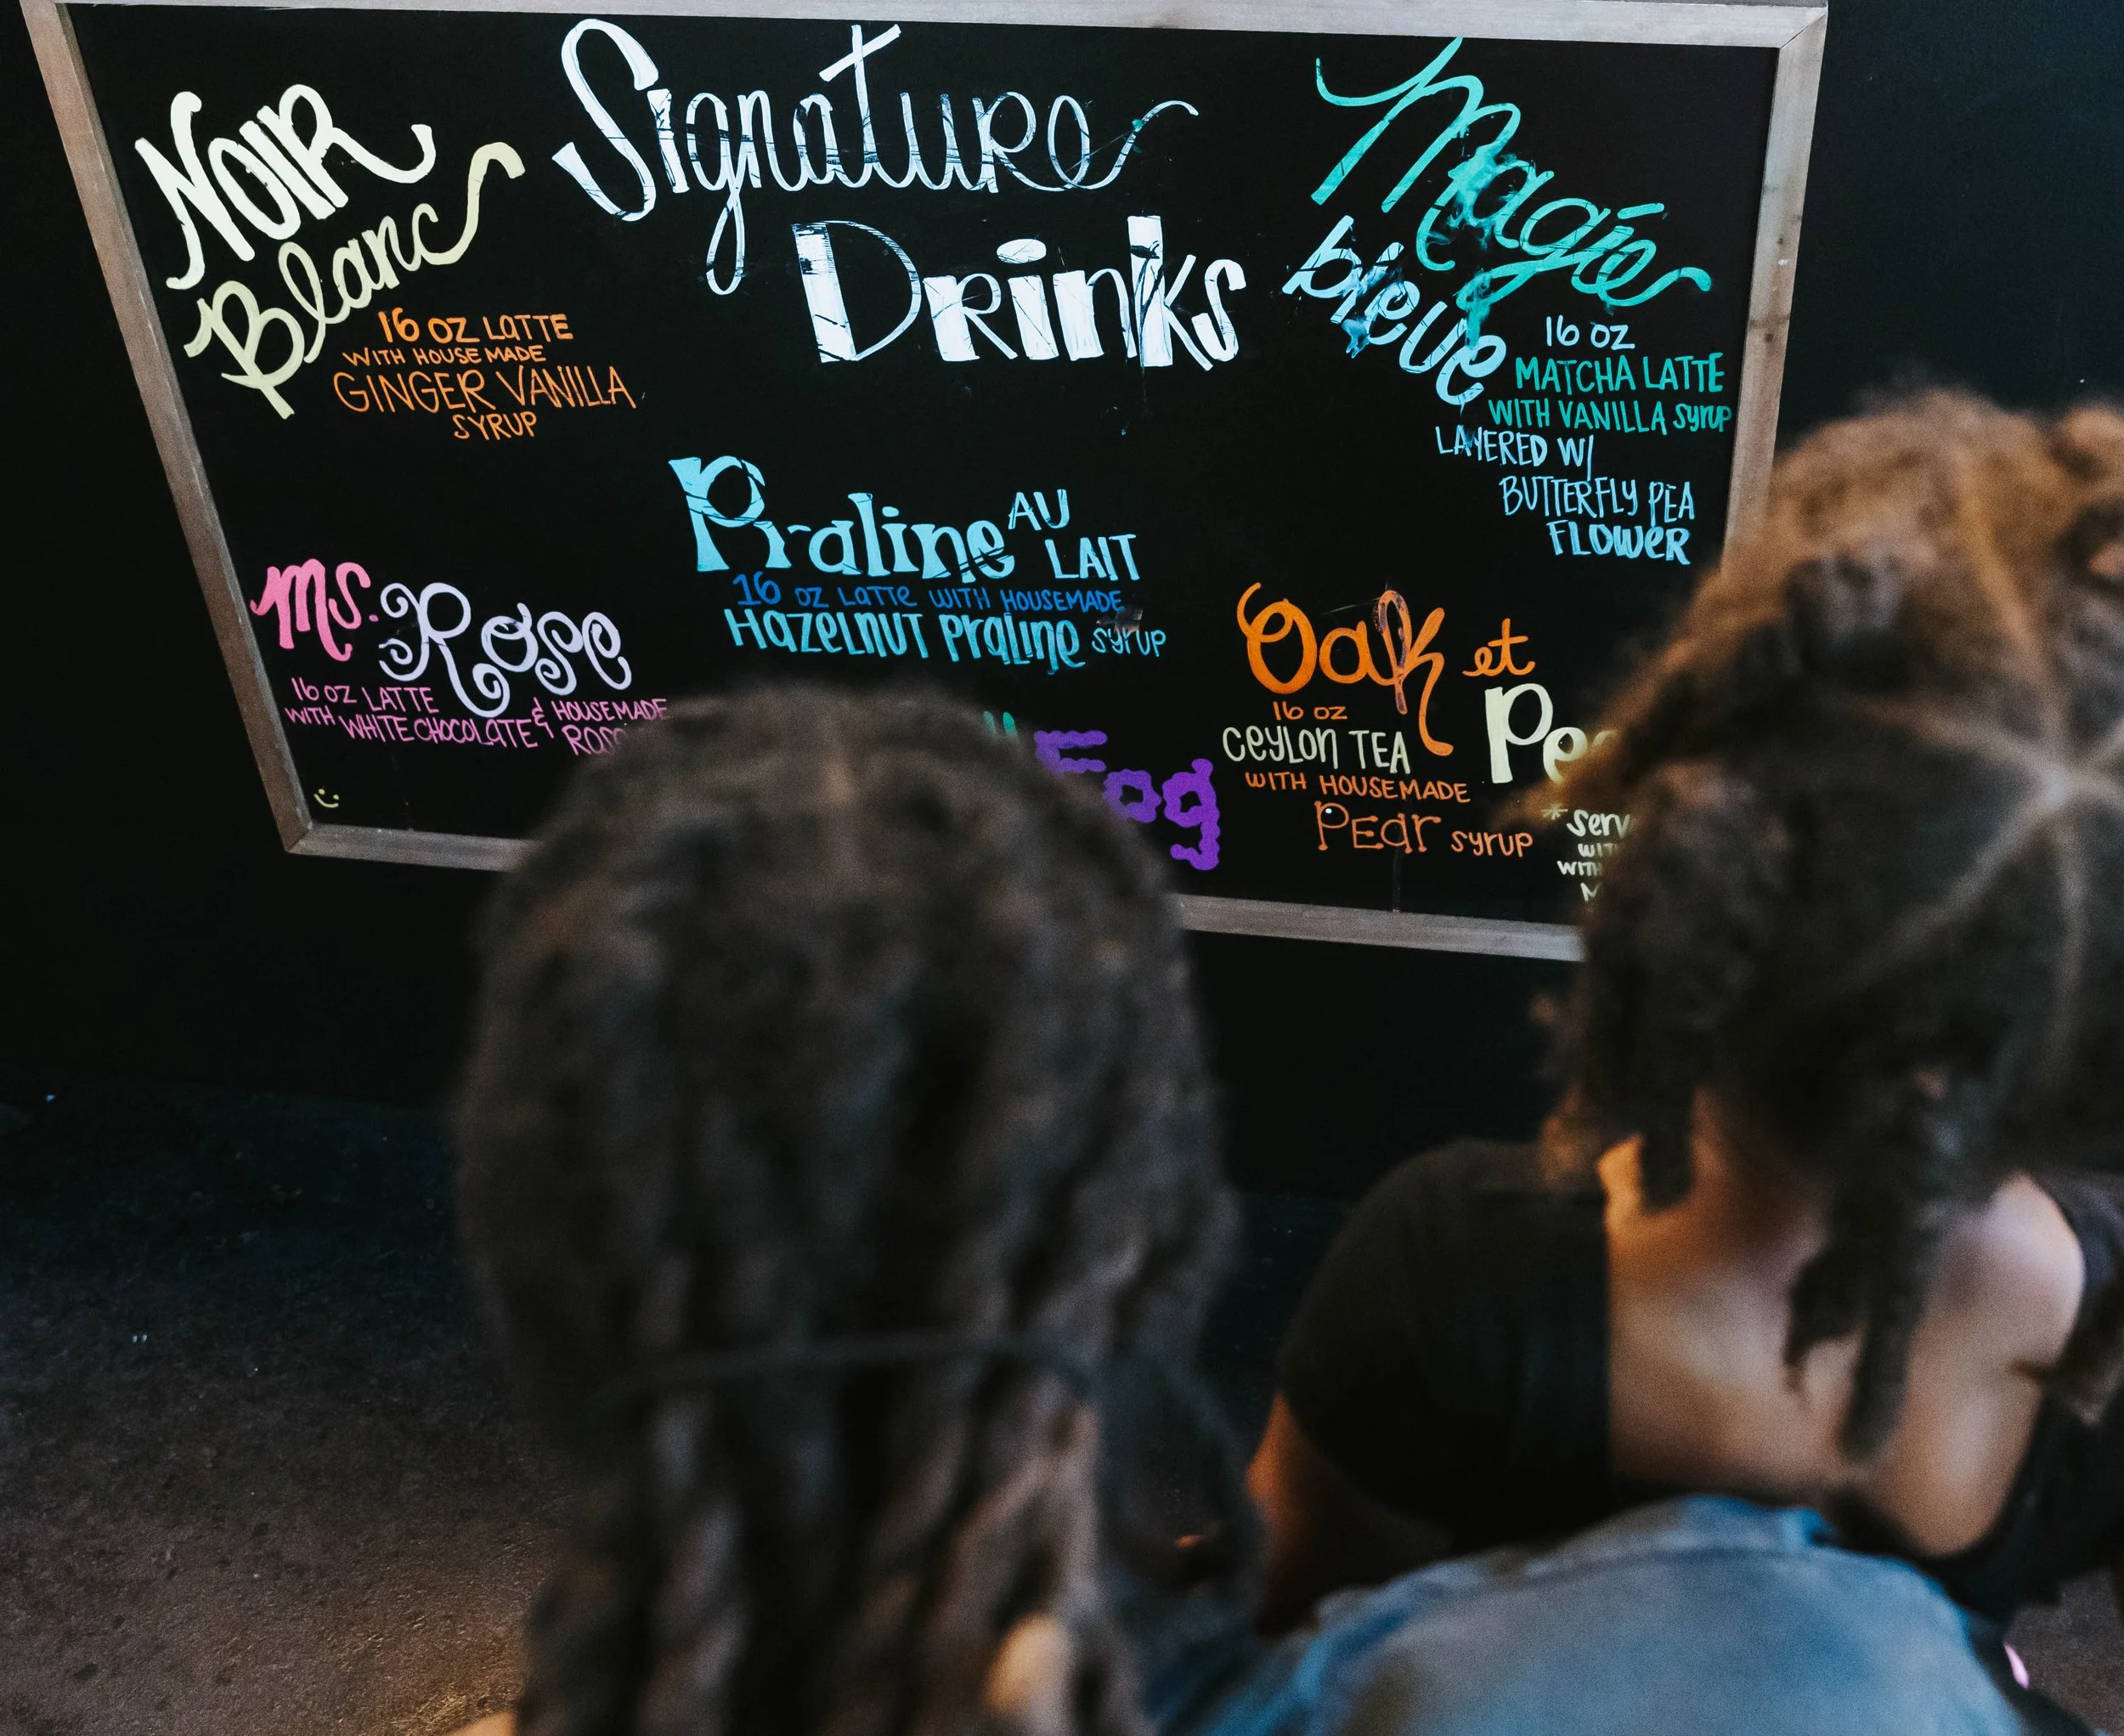 Signature
Drinks
NOIR
Blanc
16 OZ LATTE
WITH HOUSE MADE
GINGER VANILLA
SYRUP
Magie
bleue
16 OZ
MATCHA LATTE
WITH VANILLA syrup
LAYERED W/
BUTTERFLY PEA
FLOWER
Praline AU
LAIT
16 OZ LATTE WITH HOUSEMADE
Hazelnut Praline syrup
Ms. Rose
16 OZ LATTE
WITH WHITE CHOCOLATE & HOUSEMADE
Oak et
16 OZ
CEYLON TEA
WITH HOUSEMADE
PEar syrup
Fog